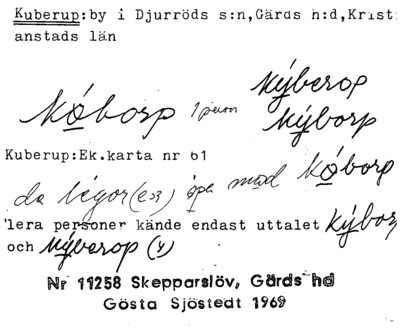 Kuberup:by i Djurröds s:n,Gärds h:d,Krist
anstads län
kýberop
kóborp 1 person kýborp
Kuberup:Ek.karta nr 61
kóborp
de
'lera personer kände endast uttalet kýbor
och kýberop (y)
Nr 11258 Skepparslöv, Gärds hd
Gösta Sjöstedt 1969